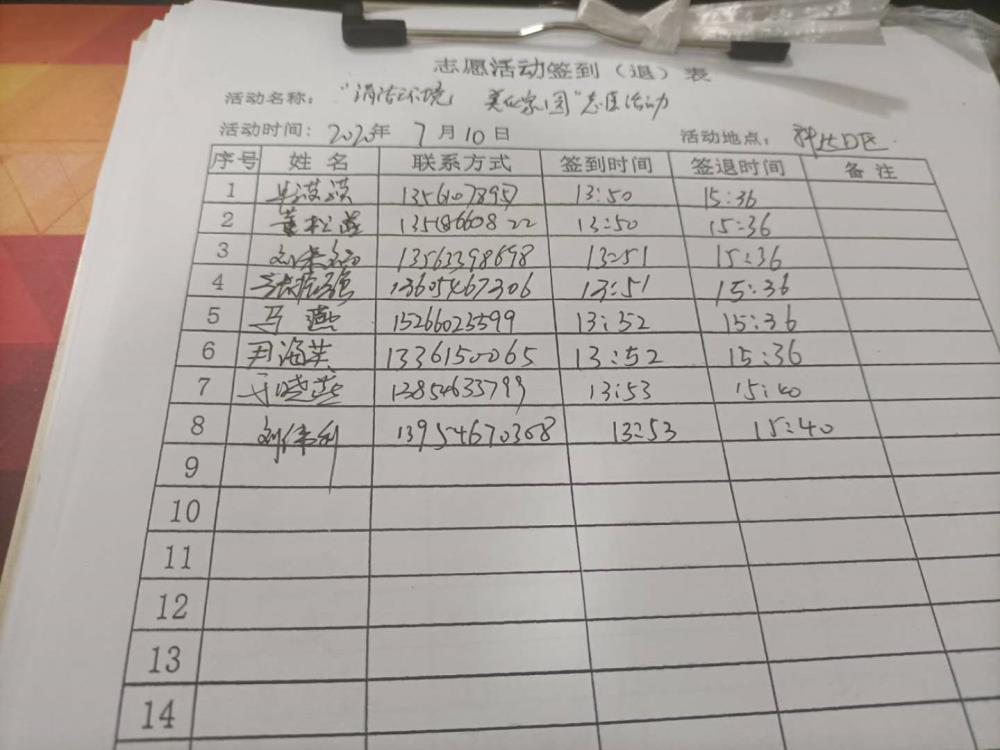 志愿活动签到（退）表
活动名称："清洁环境 美化家园"志愿活动
活动时间：2023年 7月10日 活动地点：
序号 姓名 联系方式 签到时间 签退时间 备注
1 13:50 15:36
2 董松燕 13:50 15:36
3 13563398698 13:51 15:36
4 13605467306 13:51 15:36
5 马燕 15266023599 13:52 15:36
6 尹海英 13361500065 13:52 15:36
7 于晓燕 13854633799 13:53 15:40
8 刘伟利 13954670368 13:53 15:40
9
10
11
12
13
14